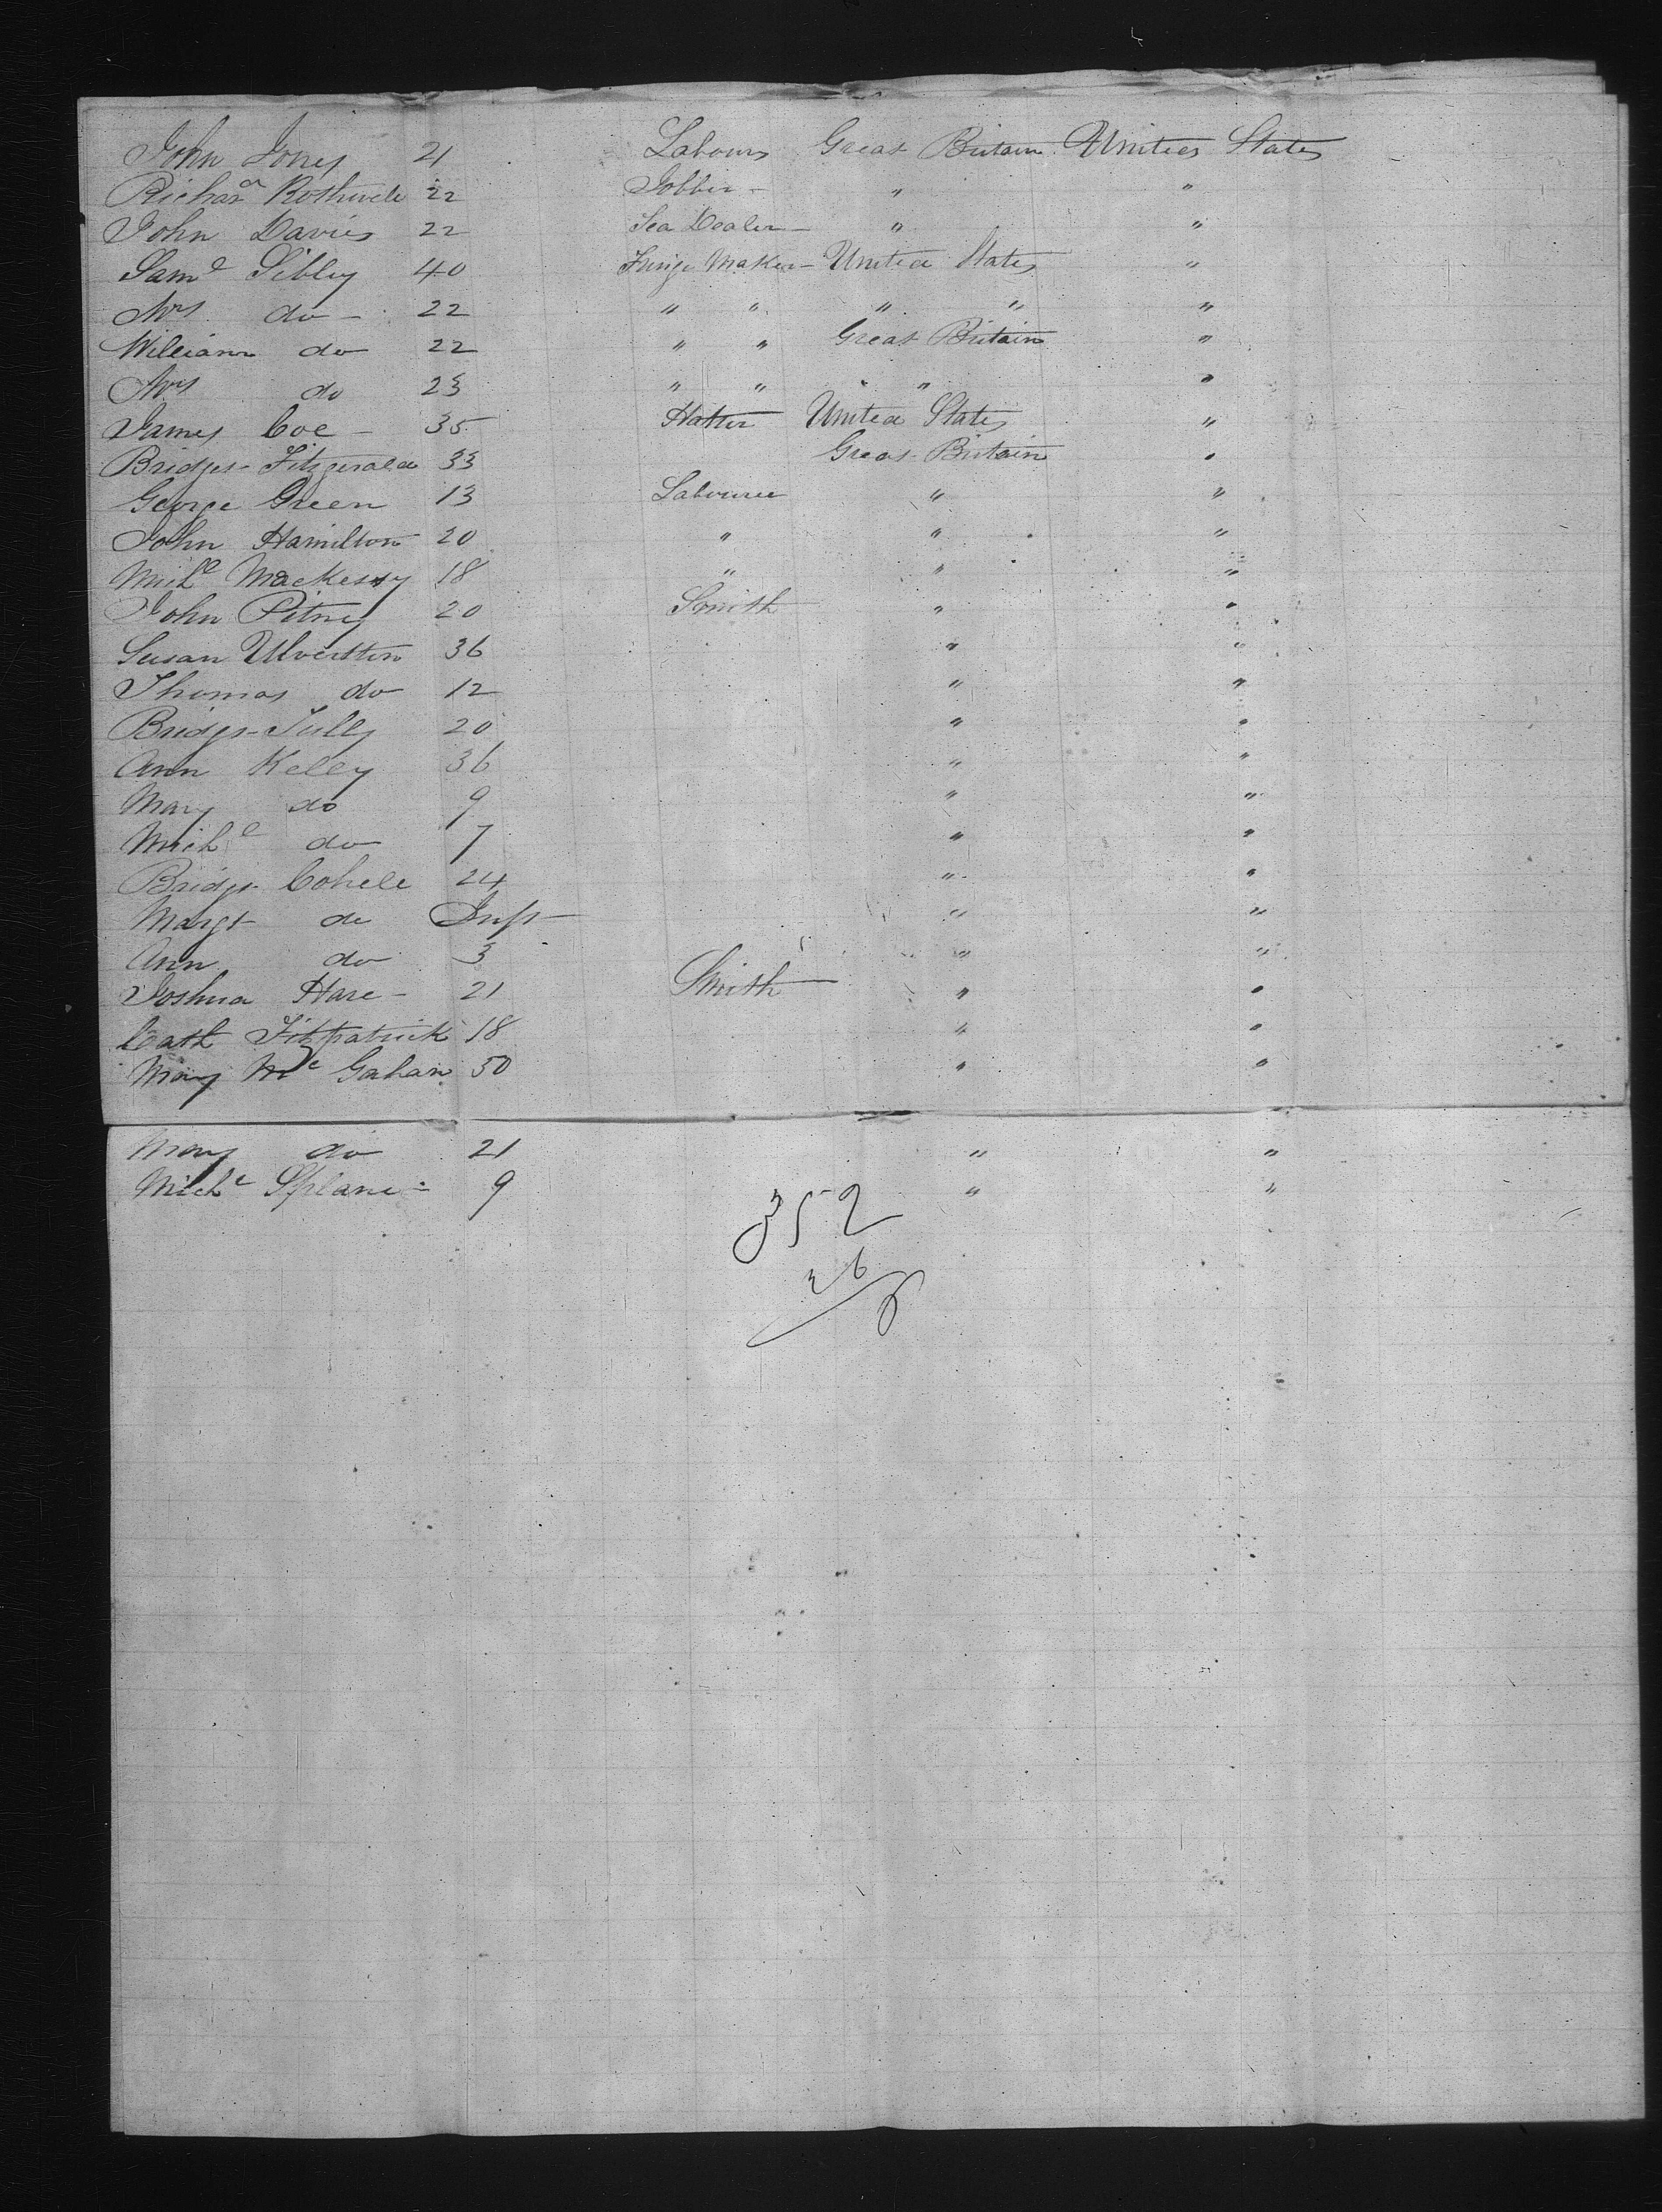 John Jones 21 Labours Great Britain United States
Richard Rothwell 22 Jobber - " "
John Davies 22 Tea Dealer - " "
Saml Sibley 40 Fringe Maker - United States "
Mrs do - 22 " " " " "
William do 22 " " Great Britain "
Mrs do 23 " " " "
James Coe - 35 Hatter United States "
Bridget Fitzgerald 33 Great Britain "
George Green 13 Labourer " "
John Hamilton 20 " " "
Michl Mackessy 18 " " "
John Pitney 20 Smith " "
Susan Ulverston 36 " "
Thomas do 12 " "
Bridgt Tully 20 " "
Ann Kelly 36 " "
Mary do 9 " "
Michl do 7 " "
Bridgt Cohele 24 " "
Margt do Inft " "
Ann do 3 " "
Joshua Hare - 21 Smith " "
Cath Fitzpatrick 18 " "
Mary Mc Gahan 50 " "
Mary do 21 " "
Michl Splane - 9 " "
352
26